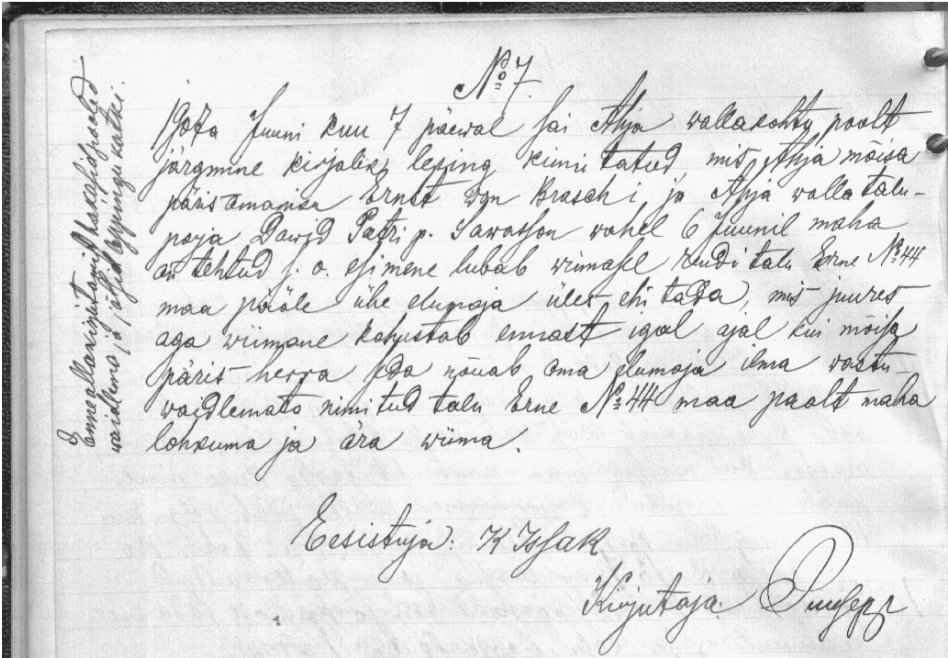 No 7.
1907a Juuni kuu 7 päewal sai Ahja wallakohtu poolt
järgmine kirjalik leping kinni tatud mis Ahja mõisa
päris omaniku Ernst von Brasch i ja Ahja walla talu-
poja Dawid Petri p. Sawasson wahel 6 Juunil maha
on tehtud s. o. esimene lubab wiimasel rendi talu Erne No 44
maa pääle ühe elumaja üles ehi tada, mis juures
aga wiimane kohustab ennast igal ajal kui mõisa
päris-herra seda nõuab oma elumaja ilma wastu
waidlemata nimitud talu Erne No 44 maa paalt maha
lohkuma ja ära wiima.
Eesistuja: K Issak
Kirjutaja: